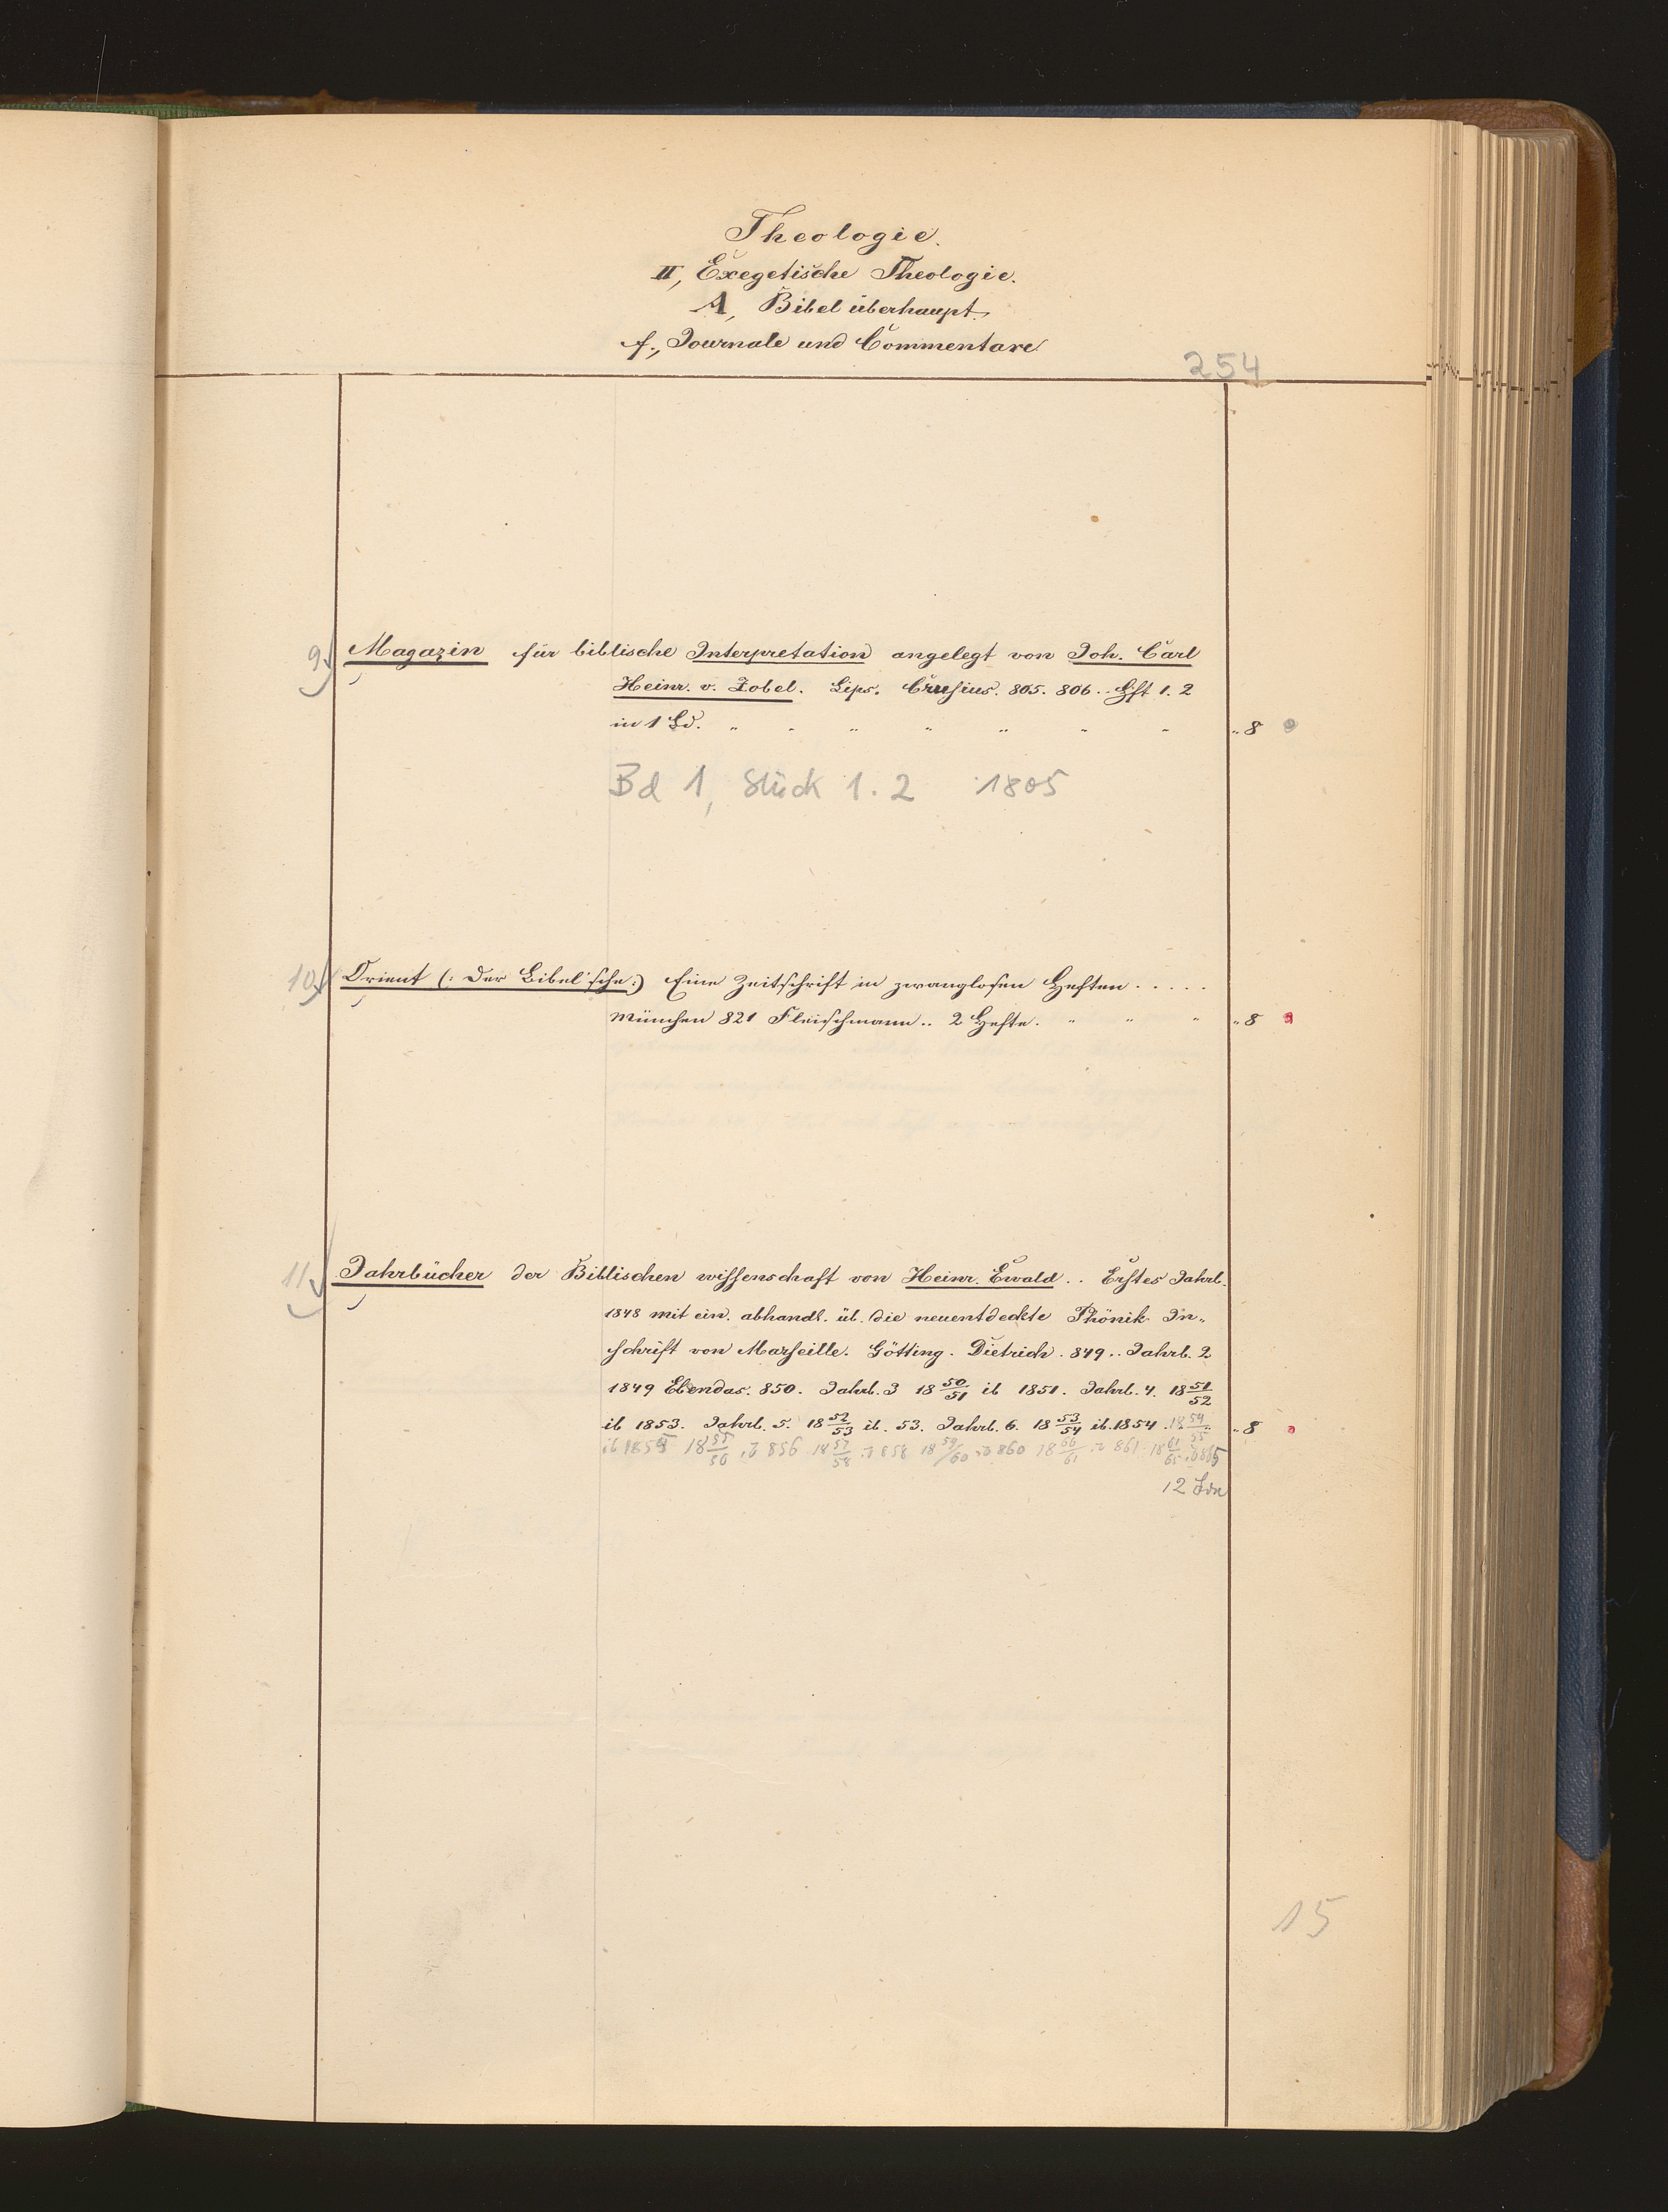 Theologie.
II, Exegetische Theologie.
A, Bibel überhaupt.
f., Journale und Commentare
254
9 Magazin für biblische Interpretation angelegt von Joh. Carl
Heinr. v. Zobel. Lips. Crusius. 805. 806.. Hft 1. 2
in 1 Bd. " " " " " " " " 8
Bd 1, Stück 1. 2 1805
10 Orient (: Der Bibel'sche :) Eine Zeitschrift in zwanglosen Heften . . . . .
München 821 Fleischmann.. 2 Hefte. " " " " 8
11 Jahrbücher der Biblischen wissenschaft von Heinr. Ewald.. Erstes Jahrb.
1848 mit ein. abhandl. üb. die neuentdeckte Phönik. In-
schrift von Marseille. Götting. Dietrich. 849.. Jahrb. 2
1849 Ebendas. 850. Jahrb. 3 18 50/51 ib 1851. Jahrb. 4. 18 51/52
ib 1853. Jahrb. 5. 18 52/53 ib. 53. Jahrb. 6. 18 53/54 ib. 1854. 18 54/55 " 8
ib 1855 18 55/56 ib 856 18 57/58 ib 858 18 59/60 ib 860 18 60/61 ib 861 18 61/65 ib 865
12 Bde
15